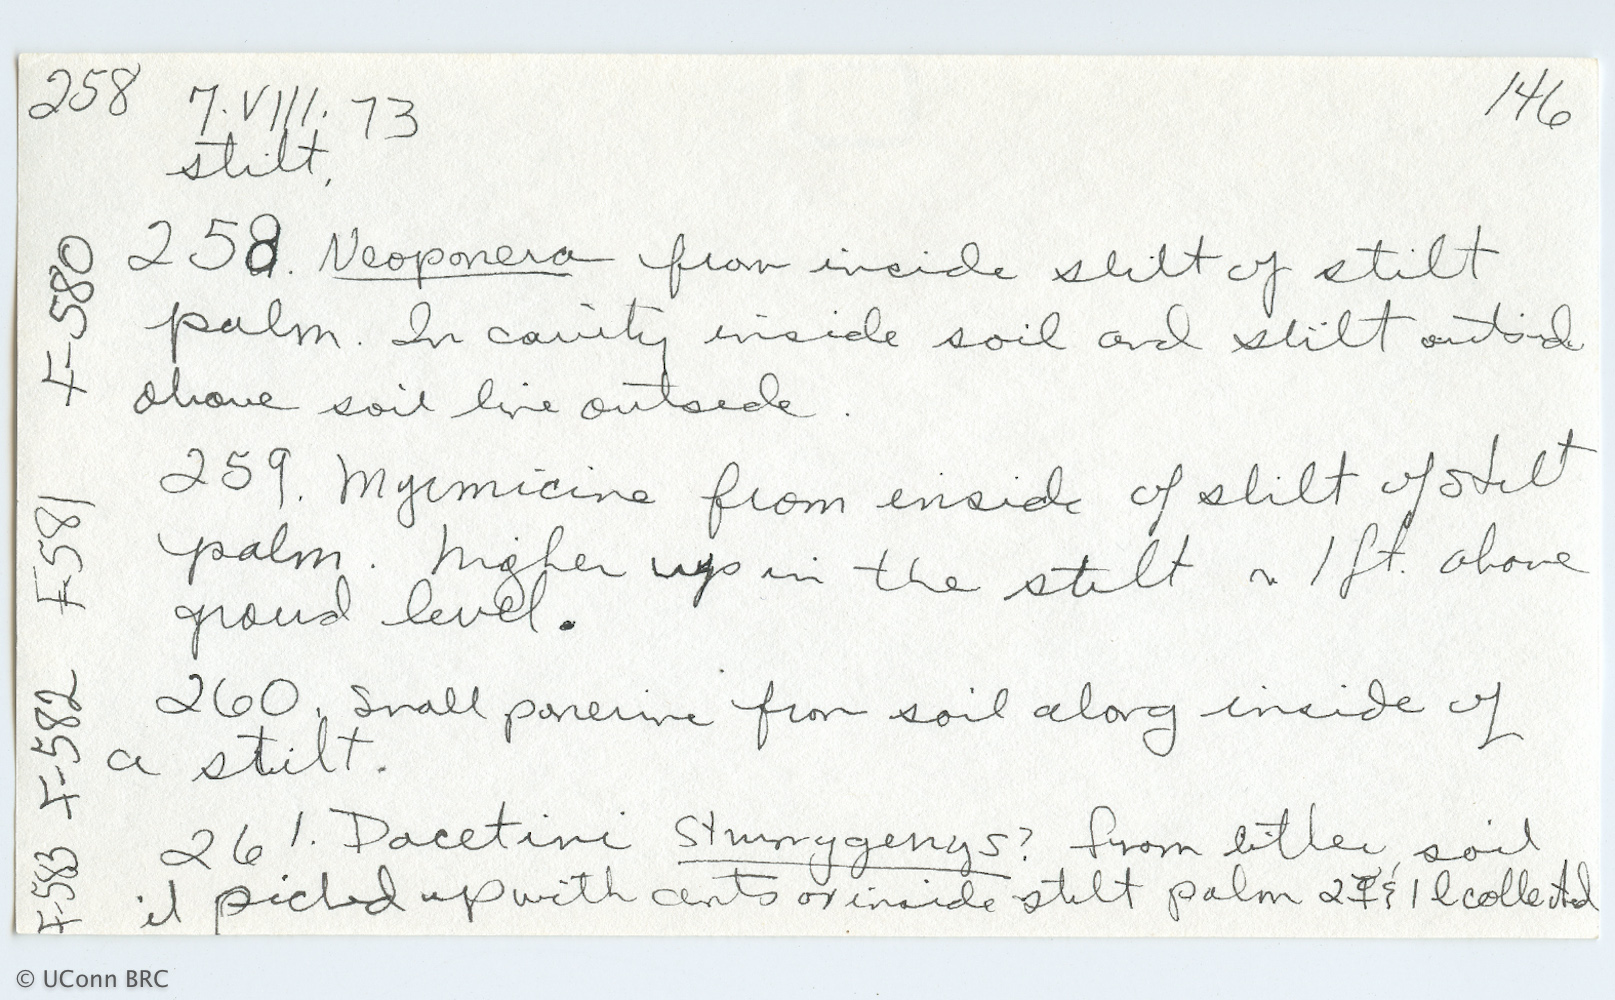 258 7.VIII.73 146
stilt,
258. Neoponera from inside stilt of stilt
palm. In cavity inside soil and stilt outsid
above soil line outside.
259. Myrmicine from inside of stilt of stilt
palm. higher up in the stilt ~ 1 ft. above
ground level.
260. Small ponerine from soil along inside of
a stilt.
261. Dacetini Strumygenys? from litter, soil
it picked up with ants or inside stilt palm 2 & 1 collected
F-580
F-581
F-582
F-583
© UConn BRC